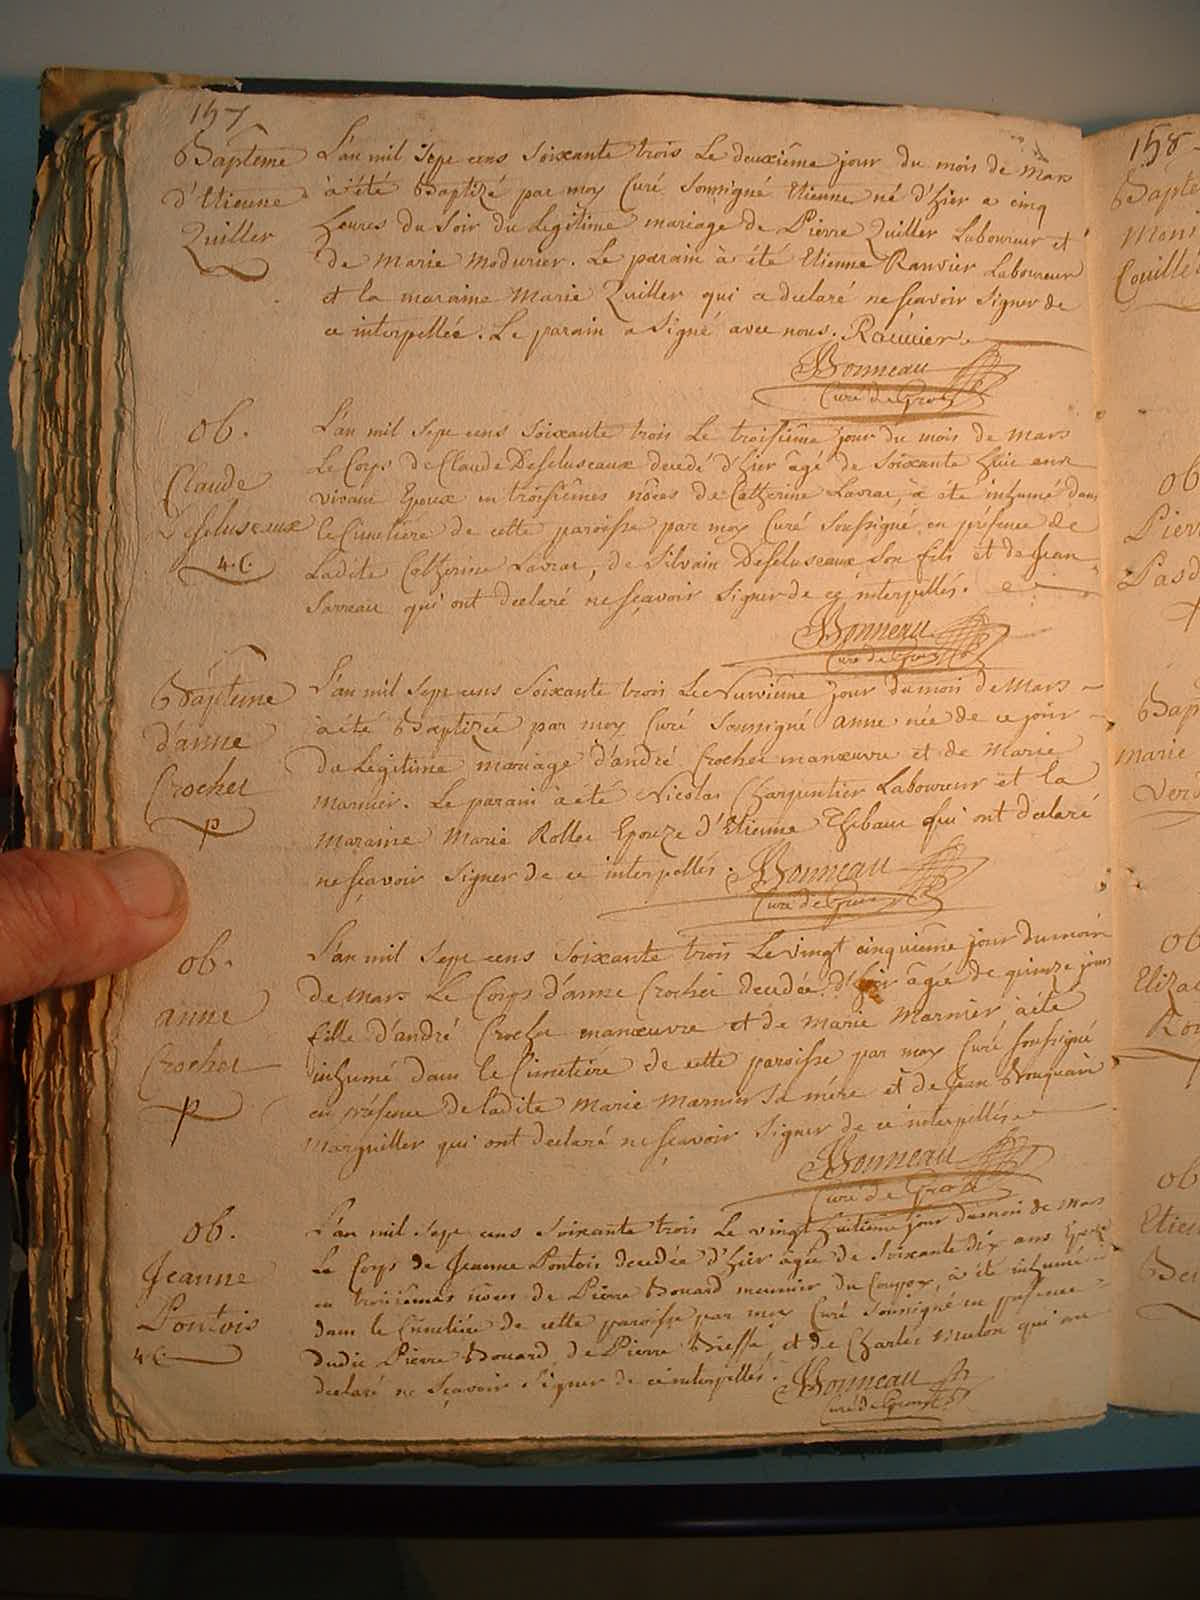 157
Baptême
d'Etienne
Quiller
L'an mil sept cens soixante trois Le deuxiême jour du mois de Mars
à été Baptizé par moy Curé soussigné Etienne né d'hier a cinq
heures du soir du Legitime mariage de Pierre Quiller Laboureur et
de Marie Modurier. Le parain à été Etienne Ranvier Laboureur
et la maraine Marie Quiller qui a declaré ne sçavoir signer de
ce interpellée. Le parain a signé avec nous. Ranvier
Bonneau
Curé de
ob.
Claude
Defeluseaux
4.C.
L'an mil sept cens soixante trois Le troisiême jour du mois de Mars
Le Corps de Claude Defeluseaux decedé d'hier âgé de soixante huit ans
vivant Epoux en troisiêmes nôces de Catherine Lavrat, à été inhumé dans
le Cimetiere de cette paroisse par moy Curé soussigné en présence de
Ladite Catherine Lavrat, de Silvain Defeluseaux son fils et de Jean
qui ont declaré ne sçavoir signer de ce interpellés.
Bonneau
Curé de
Baptême
d'anne
Crochet
p
L'an mil sept cens soixante trois Le Neuviême jour du mois de Mars
à été Baptizée par moy Curé soussigné anne née de ce jour
du Légitime mariage d'andré Crochet manœuvre et de Marie
Marnier. Le parain à été Nicolas Charpentier Laboureur et la
Maraine Marie Rollet Epouze d'Etienne Thibaut qui ont declaré
ne sçavoir signer de ce interpellés. Bonneau
Curé de
ob.
anne
Crochet
p
L'an mil sept cens soixante trois Le vingt cinquiême jour du mois
de Mars Le Corps d'anne Crochet decedée d'hier âgée de quinze jours
fille d'andré Crochet manœuvre et de Marie Marnier à été
inhumé dans le Cimetiére de cette paroisse par moy Curé soussigné
en présence de ladite Marie Marnier sa mére et de Jean Bouquain
Marguiller qui ont declaré ne sçavoir signer de ce interpellés
Bonneau
Curé de
ob.
Jeanne
Pontois
4.C.
L'an mil sept cens soixante trois Le vingt huitiême jour du mois de Mars
Le Corps de Jeanne Pontois decedée d'hier âgée de soixante dix ans
en troisiêmes nôces de Pierre Bouard meunier du à été inhumé
dans le Cimetiére de cette paroisse par moy Curé soussigné en présence
dudit Pierre Bouard, de Pierre et de Charles Mulon qui ont
declaré ne sçavoir signer de ce interpellés. Bonneau
Curé de
158
ob
ob
ob